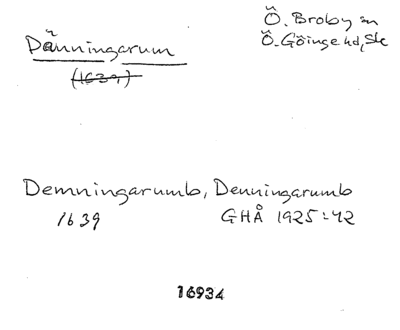 Ö. Broby sn
Dänningarum
Ö. Göinge hd, Sk
(1639)
Demningarumb, Denningarumb
1639 GHÅ 1925:42
16934